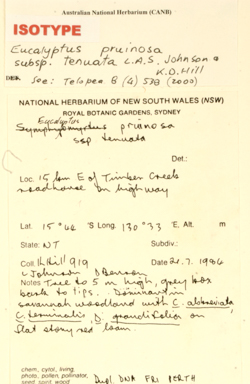 Australian National Herbarium (CANB)
ISOTYPE
Eucalyptus pruinosa
subsp. tenuata L.A.S. Johnson &
K.D. Hill
DET. See: Telopea 8 (4) 528 (2000)
NATIONAL HERBARIUM OF NEW SOUTH WALES (NSW)
ROYAL BOTANIC GARDENS, SYDNEY
Eucalyptus
Symphyomyrtus pruinosa
ssp tenuata
Det.:
Loc. 15 km E of Timber Creek
roadhouse on highway
Lat. 15° 42' S Long. 130° 33' E. Alt. m
State: NT Subdiv.:
Coll. K Hill 919 Date 21.7.1984
L Johnson D Benson
Notes Tree to 5 m high, grey box
bark to tips. Dominant in
savannah woodland with C. abbreviata
C. terminalis, grandifolia on
flat stony red loam.
chem, cytol, living,
photo, pollen, pollinator,
seed, spirit, wood Dupl. DNA FRI PERTH